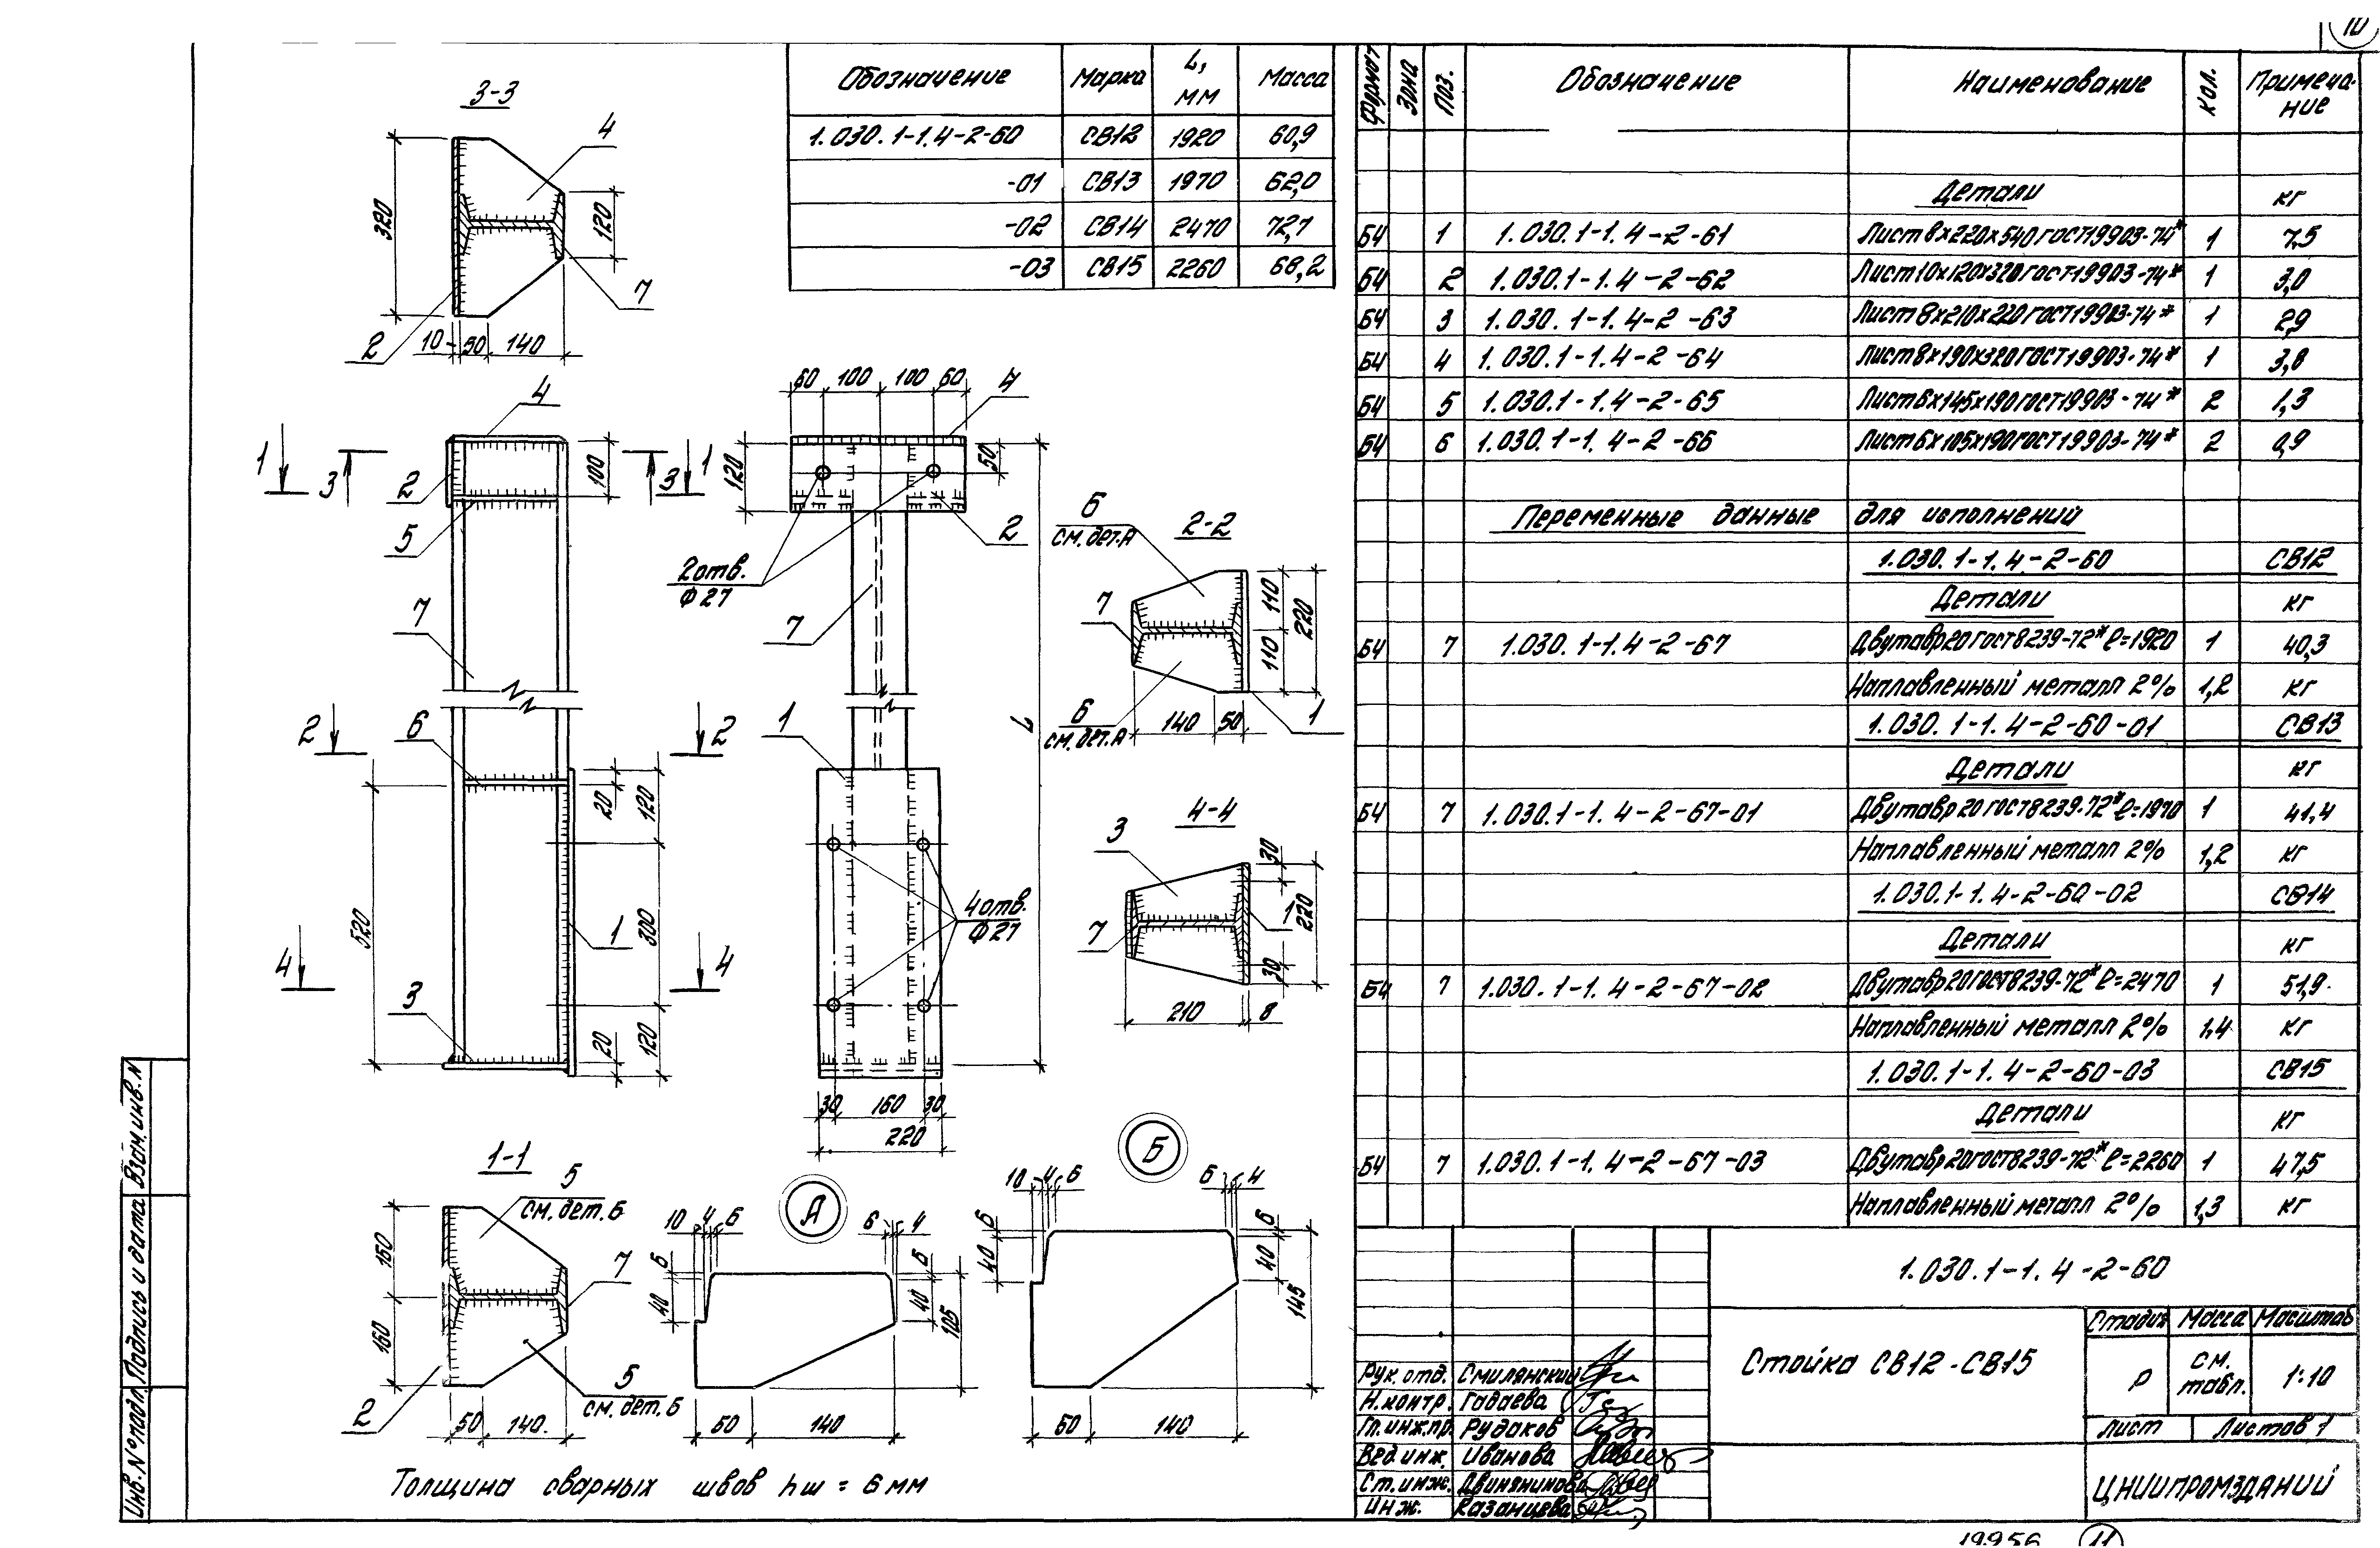 10
3-3
4
320
120
7
2
10
50
140
Обозначение Марка L, мм Масса
1.030.1-1.4-2-60 СВ12 1920 60,9
-01 СВ13 1970 62,0
-02 СВ14 2470 72,7
-03 СВ15 2260 68,2
4
1
3
2
100
3
1
5
7
2
2
6
20
120
520
1
300
4
4
3
20
120
60 100 100 60
4
50
120
2
2отв.
Ф27
7
L
1
4отв.
Ф27
30 160 30
220
6
см.дет.А
2-2
7
110
220
110
6
см.дет.А
140 50
1
4-4
3
30
1
220
7
30
210 8
1-1
5
см.дет.Б
7
160
160
2
5
см.дет.Б
50 140
А
10 4 6
6 4
6
40
6
40
105
50 140
Б
10 4 6
6 4
6
40
6
40
145
50 140
Толщина сварных швов hш = 6мм
Формат Зона Поз. Обозначение Наименование Кол. Примеча-
ние
Детали кг
БЧ 1 1.030.1-1.4-2-61 Лист 8х220х540 ГОСТ19903-74* 1 7,5
БЧ 2 1.030.1-1.4-2-62 Лист10х120х320ГОСТ19903-74* 1 3,0
БЧ 3 1.030.1-1.4-2-63 Лист 8х210х220 ГОСТ19903-74* 1 2,9
БЧ 4 1.030.1-1.4-2-64 Лист8х190х320ГОСТ19903-74* 1 3,8
БЧ 5 1.030.1-1.4-2-65 Лист6х145х190ГОСТ19903-74* 2 1,3
БЧ 6 1.030.1-1.4-2-66 Лист6х105х190ГОСТ19903-74* 2 0,9
Переменные данные для исполнений
1.030.1-1.4-2-60 СВ12
Детали кг
БЧ 7 1.030.1-1.4-2-67 Двутавр20ГОСТ8239-72* ℓ=1920 1 40,3
Наплавленный металл 2% 1,2 кг
1.030.1-1.4-2-60-01 СВ13
Детали кг
БЧ 7 1.030.1-1.4-2-67-01 Двутавр20ГОСТ8239-72* ℓ=1970 1 41,4
Наплавленный металл 2% 1,2 кг
1.030.1-1.4-2-60-02 СВ14
Детали кг
БЧ 7 1.030.1-1.4-2-67-02 Двутавр20ГОСТ8239-72* ℓ=2470 1 51,9
Наплавленный металл 2% 1,4 кг
1.030.1-1.4-2-60-03 СВ15
Детали кг
БЧ 7 1.030.1-1.4-2-67-03 Двутавр20ГОСТ8239-72* ℓ=2260 1 47,5
Наплавленный металл 2% 1,3 кг
1.030.1-1.4-2-60
Стойка СВ12-СВ15
Стадия Масса Масштаб
Р см. табл. 1:10
Лист Листов 1
ЦНИИПРОМЗДАНИЙ
Рук.отд. Смилянский
Н.контр. Гадаева
Гл.инж.пр. Рудаков
Вед.инж. Иванова
Ст.инж. Двинянинова
Инж. Казанцева
Инв.№подл. Подпись и дата Взам.инв.N
19956 11